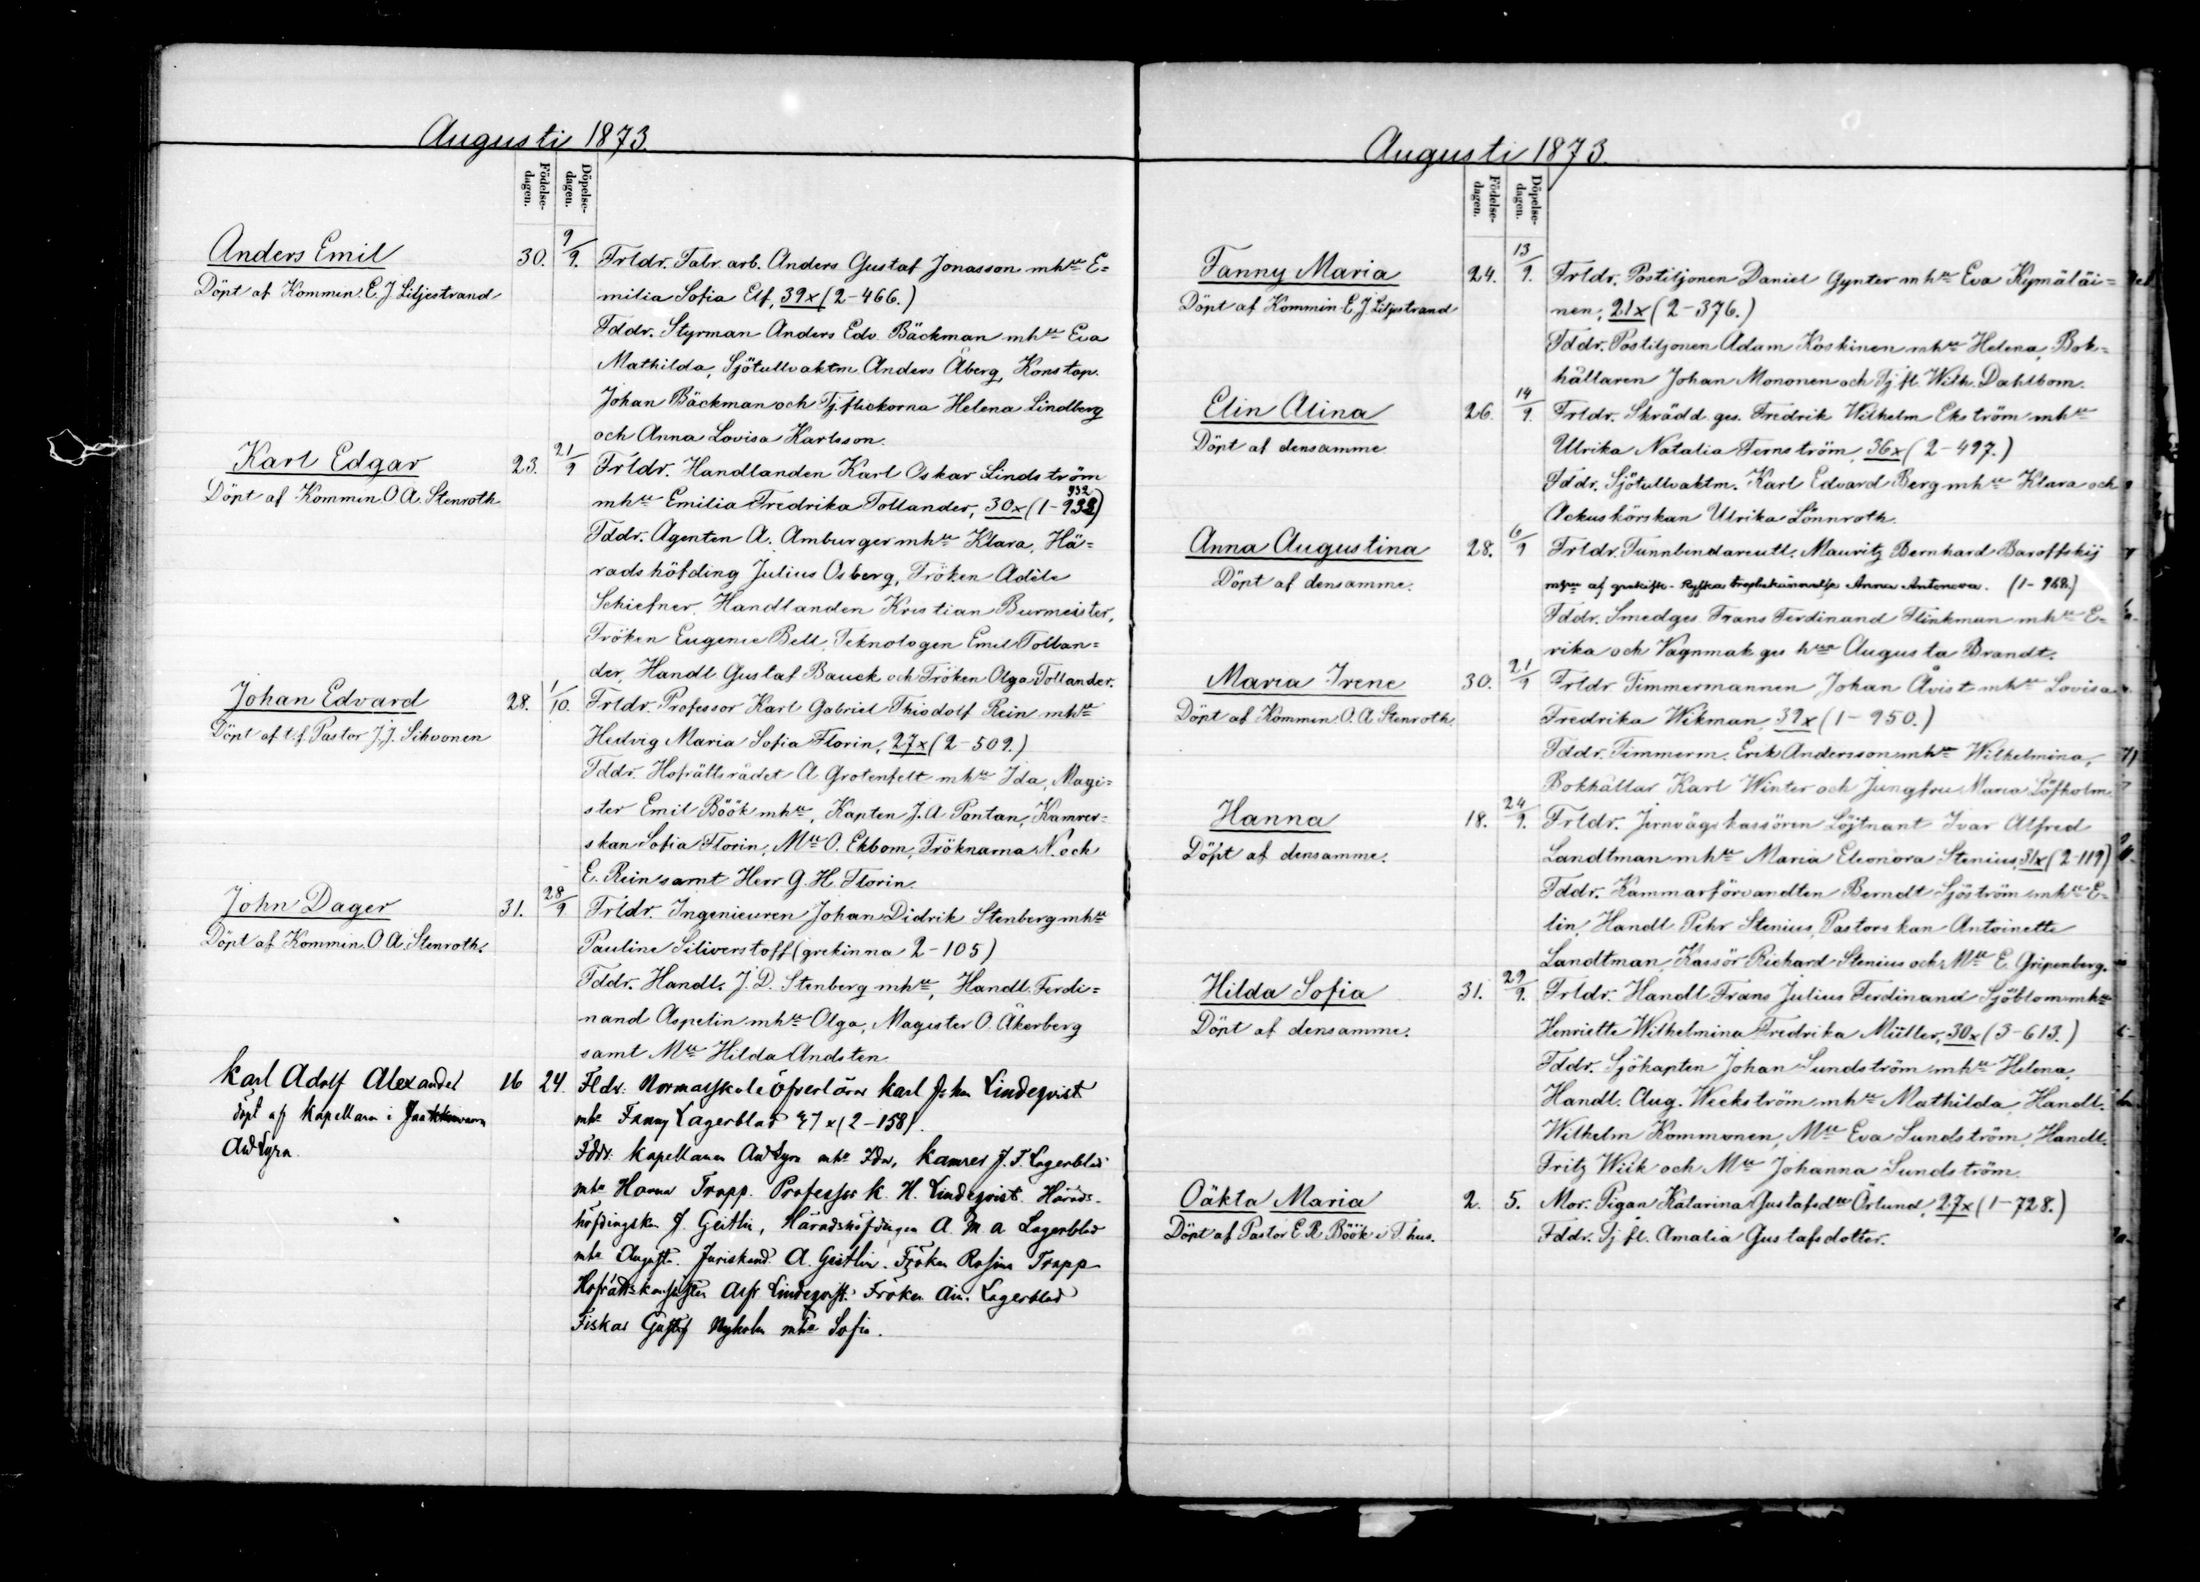 Augusti 1873.
Födelse-dagen.
Döpelse-dagen.
Anders Emil
Döpt af Kommin. E. J. Liljestrand
30. 9/9. Frldr. Fabr. arb. Anders Gustaf Jonasson mhu E=
milia Sofia Elf, 39x (2-466.)
Fddr. Styrman Anders Edv. Bäckman mhu Eva
Mathilda, Sjötullvaktm. Anders Åberg, Konstap.
Johan Bäckman och Tj.flickorna Helena Lindberg
och Anna Lovisa Karlsson.
Karl Edgar
Döpt af Kommin O. A. Stenroth
23. 21/9 Frldr. Handlanden Karl Oskar Lindström
mhu Emilia Fredrika Tollander, 30x (1-932)
Fddr. Agenten A. Amburger mhu Klara, Hä=
radshöfding Julius Osberg, Fröken Adèle
Schiefner, Handlanden Kristian Burmeister,
Fröken Eugenie Bell, Teknologen Emil Tollan=
der, Handl Gustaf Bauck och Fröken Olga Tollander.
Johan Edvard
Döpt af t.f. Pastor J. J. Sihvonen
28. 1/10. Frldr. Professor Karl Gabriel Thiodolf Rein mhu
Hedvig Maria Sofia Florin, 27x (2-509.)
Fddr. Hofrättsrådet A Grotenfelt mhu Ida, Magi=
ster Emil Böök mhu, Kapten J. A Pontan, Kamrer=
skan Sofia Florin, Mll O. Ekbom, Fröknarna N. och
E. Rein samt Herr G. H. Florin.
John Dager
Döpt af Kommin. O. A. Stenroth.
31. 28/9 Frldr. Ingenieuren Johan Didrik Stenberg mhu
Pauline Siliverstoff (grekinna 2-105)
Fddr. Handl. J. D. Stenberg mhu, Handl. Ferdi=
nand Aspelin mhu Olga, Magister O. Åkerberg
samt Mll Hilda Andsten
Karl Adolf Alexander
döpt af Kapellanen i
And Lyra.
16 24. Fldr. Normalskole öfverlärar Karl John Lindeqvist
mhu Fanny Lagerblad 27x (2-158).
Fddr. Kapellanen And Lyra mhu Ida, Kamrer J. F. Lagerblad
mhu Hanna Trapp. Professor K. H. Lindeqvist. Härads-
höfdingskan J. Geitlin, Häradshöfdingen A. M. A Lagerblad
mhu Augusta. Juriskand. A. Geitlin. Fröken Rosina Trapp
Hofrätts Lindeqvist. Fröken Lagerblad
Fiskal Gustaf Nyholm mhu Sofia.
Augusti 1873.
Födelse-dagen.
Döpelse-dagen.
Fanny Maria
Döpt af Kommin. E. J. Liljestrand
24. 13/9. Frldr. Postiljonen Daniel Gynter mhu Eva Kymäläi=
nen, 21x (2-376.)
Fddr. Postiljonen Adam Koskinen mhu Helena, Bok=
hållaren Johan Mononen och Tj.fl. Wilh. Dahlbom.
Elin Alina
Döpt af densamme
26. 14/9. Frldr. Skrädd. ges. Fredrik Wilhelm Ekström mhu
Ulrika Natalia Fernström, 36x (2-497.)
Fddr. Sjötullvaktm. Karl Edvard Berg mhu Klara och
Ackuskörskan Ulrika Lönnroth.
Anna Augustina
Döpt af densamme.
28. 6/9 Frldr. Tunnbindareutl. Mauritz Bernhard Baroffskij
mhu af grekisk-Ryska trosbekännelse Anna Antonova. (1-968.)
Fddr. Smedges. Frans Ferdinand Flinkman mhu E=
rika och Vagnmak ges hu Augusta Brandt.
Maria Irene
Döpt af Kommin. O. A. Stenroth.
30. 21/9 Frldr. Timmermannen Johan Åvist mhu Lovisa
Fredrika Wikman, 39x (1-950.)
Fddr. Timmerm. Erik Andersson mhu Wilhelmina,
Bokhållar Karl Winter och Jungfru Maria Löfholm
Hanna
Döpt af densamme.
18. 24/9. Frldr. Jernvägskassören Löjtnant Ivar Alfred
Landtman mhu Maria Eleonora Stenius, 31x (2-119)
Fddr. Kammarförvandten Berndt Sjöström mhu E-
lin, Handl. Pehr Stenius, Pastorskan Antoinette
Landtman, Kassör Richard Stenius och Mll E. Gripenberg.
Hilda Sofia
Döpt af densamme.
31. 29/9. Frldr. Handl. Frans Julius Ferdinand Sjöblom mhu
Henriette Wilhelmina Fredrika Müller, 30x (3-613.)
Fddr. Sjökapten Johan Sundström mhu Helena,
Handl. Aug. Weckström mhu Mathilda, Handl.
Wilhelm Kommonen, Mll Eva Sundström, Handl.
Fritz Wiik och Mll Johanna Sundström.
Oäkta Maria
Döpt af Pastor E. R. Böök i F. hus.
2. 5. Mor. Pigan Katarina Gustafsdtr Örlund, 27x (1-728.)
Fddr. Tj.fl. Amalia Gustafsdotter.